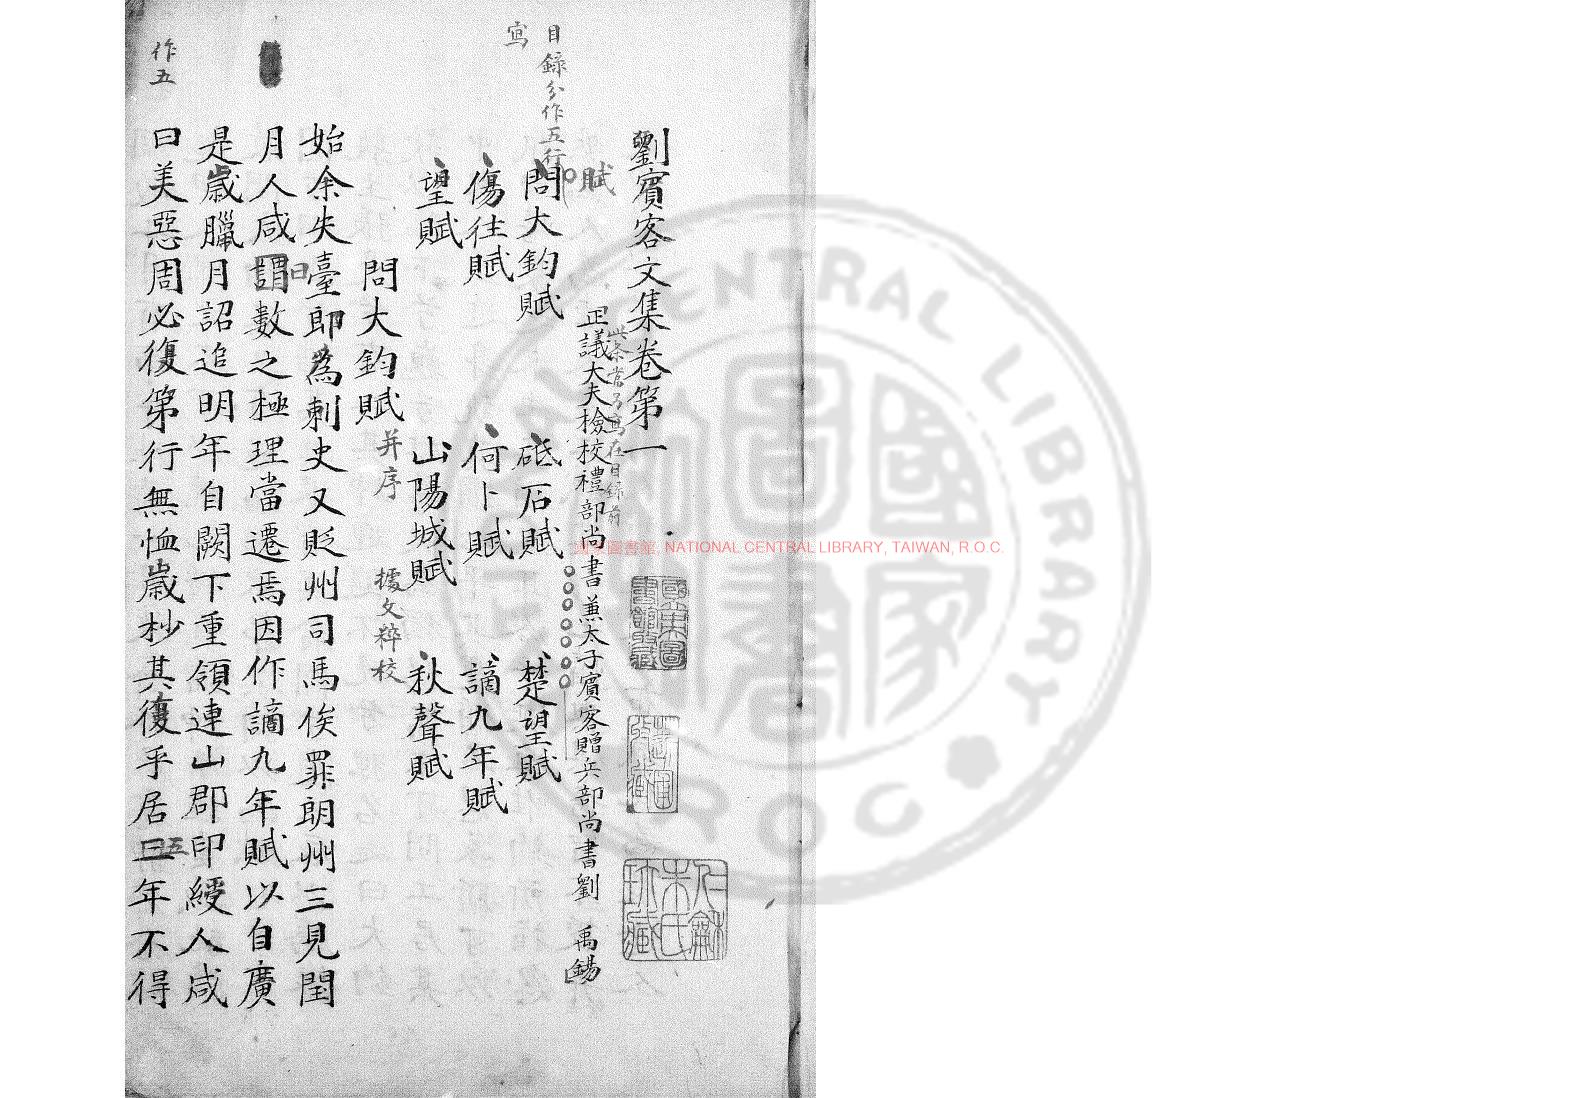 劉賓客文集卷第一
此条當另寫在目錄前
正議大夫檢校禮部尚書兼太子賓客贈兵部尚書劉　禹錫
賦
目錄分作五行
寫
問大鈞賦　砥石賦　楚望賦
傷往賦　何卜賦　謫九年賦
望賦　山陽城賦　秋聲賦
問大鈞賦　并序　據文粹校
始余失臺郎為刺史又貶州司馬俟罪朗州三見閏
月人咸謂數之極理當遷焉因作謫九年賦以自廣
是歲臘月詔追明年自闕下重領連山郡印綬人咸
曰美惡周必復第行無恤歲杪其復乎居三年不得
曰
五
作五
國家圖書館, NATIONAL CENTRAL LIBRARY, TAIWAN, R.O.C.
CENTRAL LIBRARY
ROC
國家圖書